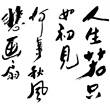 人生若只
如初見
何事秋風
悲畫扇